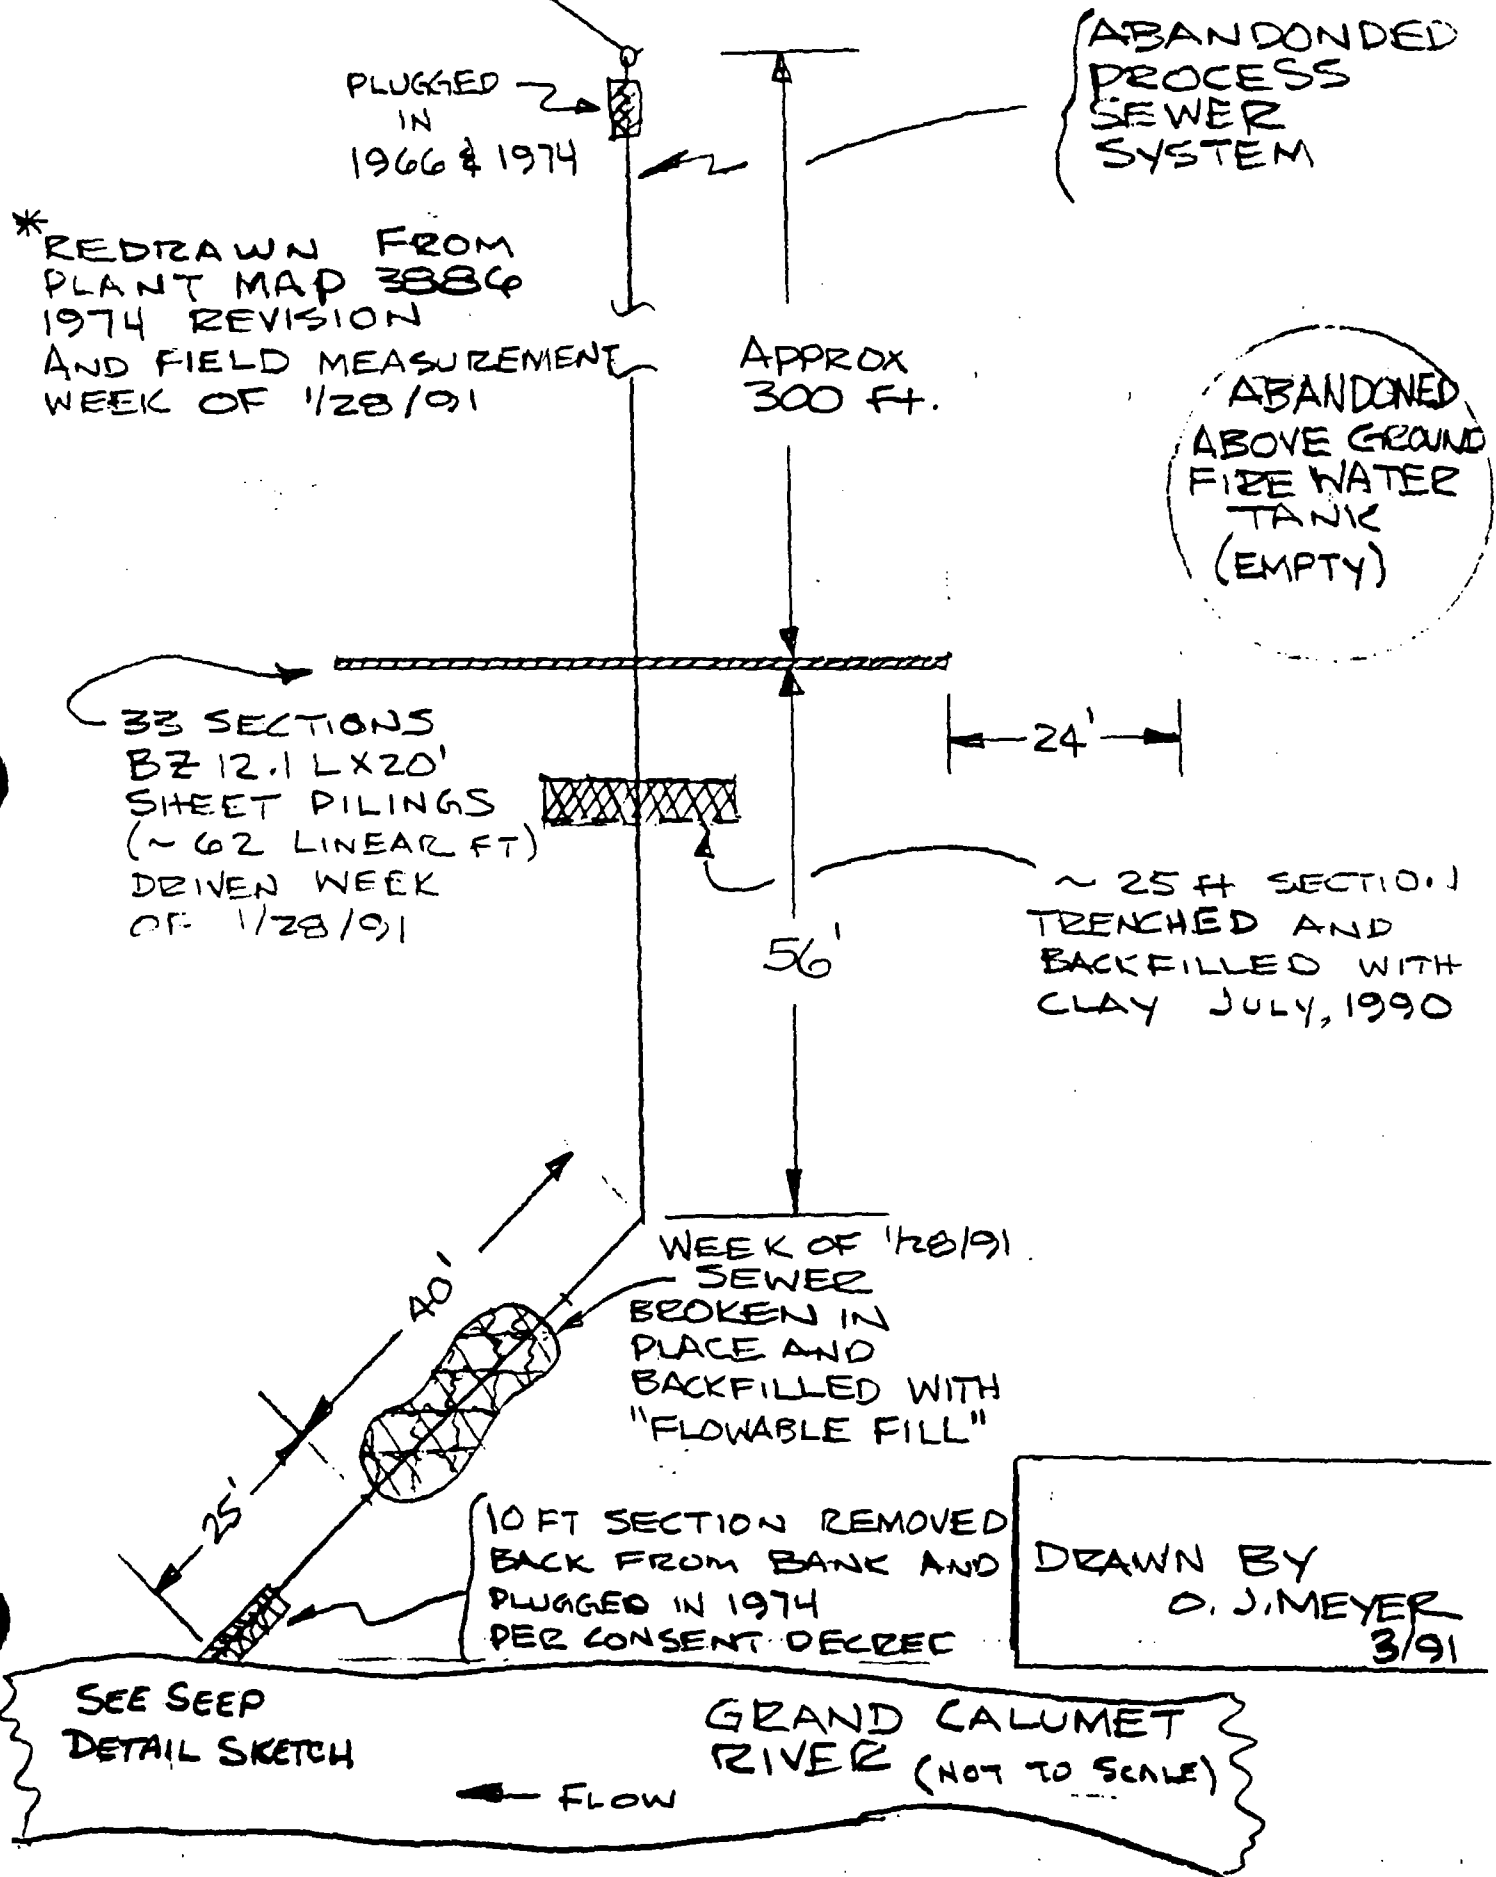 ABANDONDED
PROCESS
SEWER
SYSTEM
PLUGGED
IN
1966 & 1974
*REDRAWN FROM
PLANT MAP 3886
1974 REVISION
AND FIELD MEASUREMENT
WEEK OF 1/28/91
APPROX
300 Ft.
ABANDONED
ABOVE GROUND
FIRE WATER
TANK
(EMPTY)
33 SECTIONS
BZ 12.1 L X 20'
SHEET PILINGS
(~ 62 LINEAR FT)
DRIVEN WEEK
OF 1/28/91
24'
~ 25 ft SECTION
TRENCHED AND
BACKFILLED WITH
CLAY JULY, 1990
56'
40'
WEEK OF 1/28/91
SEWER
BROKEN IN
PLACE AND
BACKFILLED WITH
"FLOWABLE FILL"
25'
10 FT SECTION REMOVED
BACK FROM BANK AND
PLUGGED IN 1974
PER CONSENT DECREE
DRAWN BY
O. J. MEYER
3/91
SEE SEEP
DETAIL SKETCH
GRAND CALUMET
RIVER (NOT TO SCALE)
FLOW